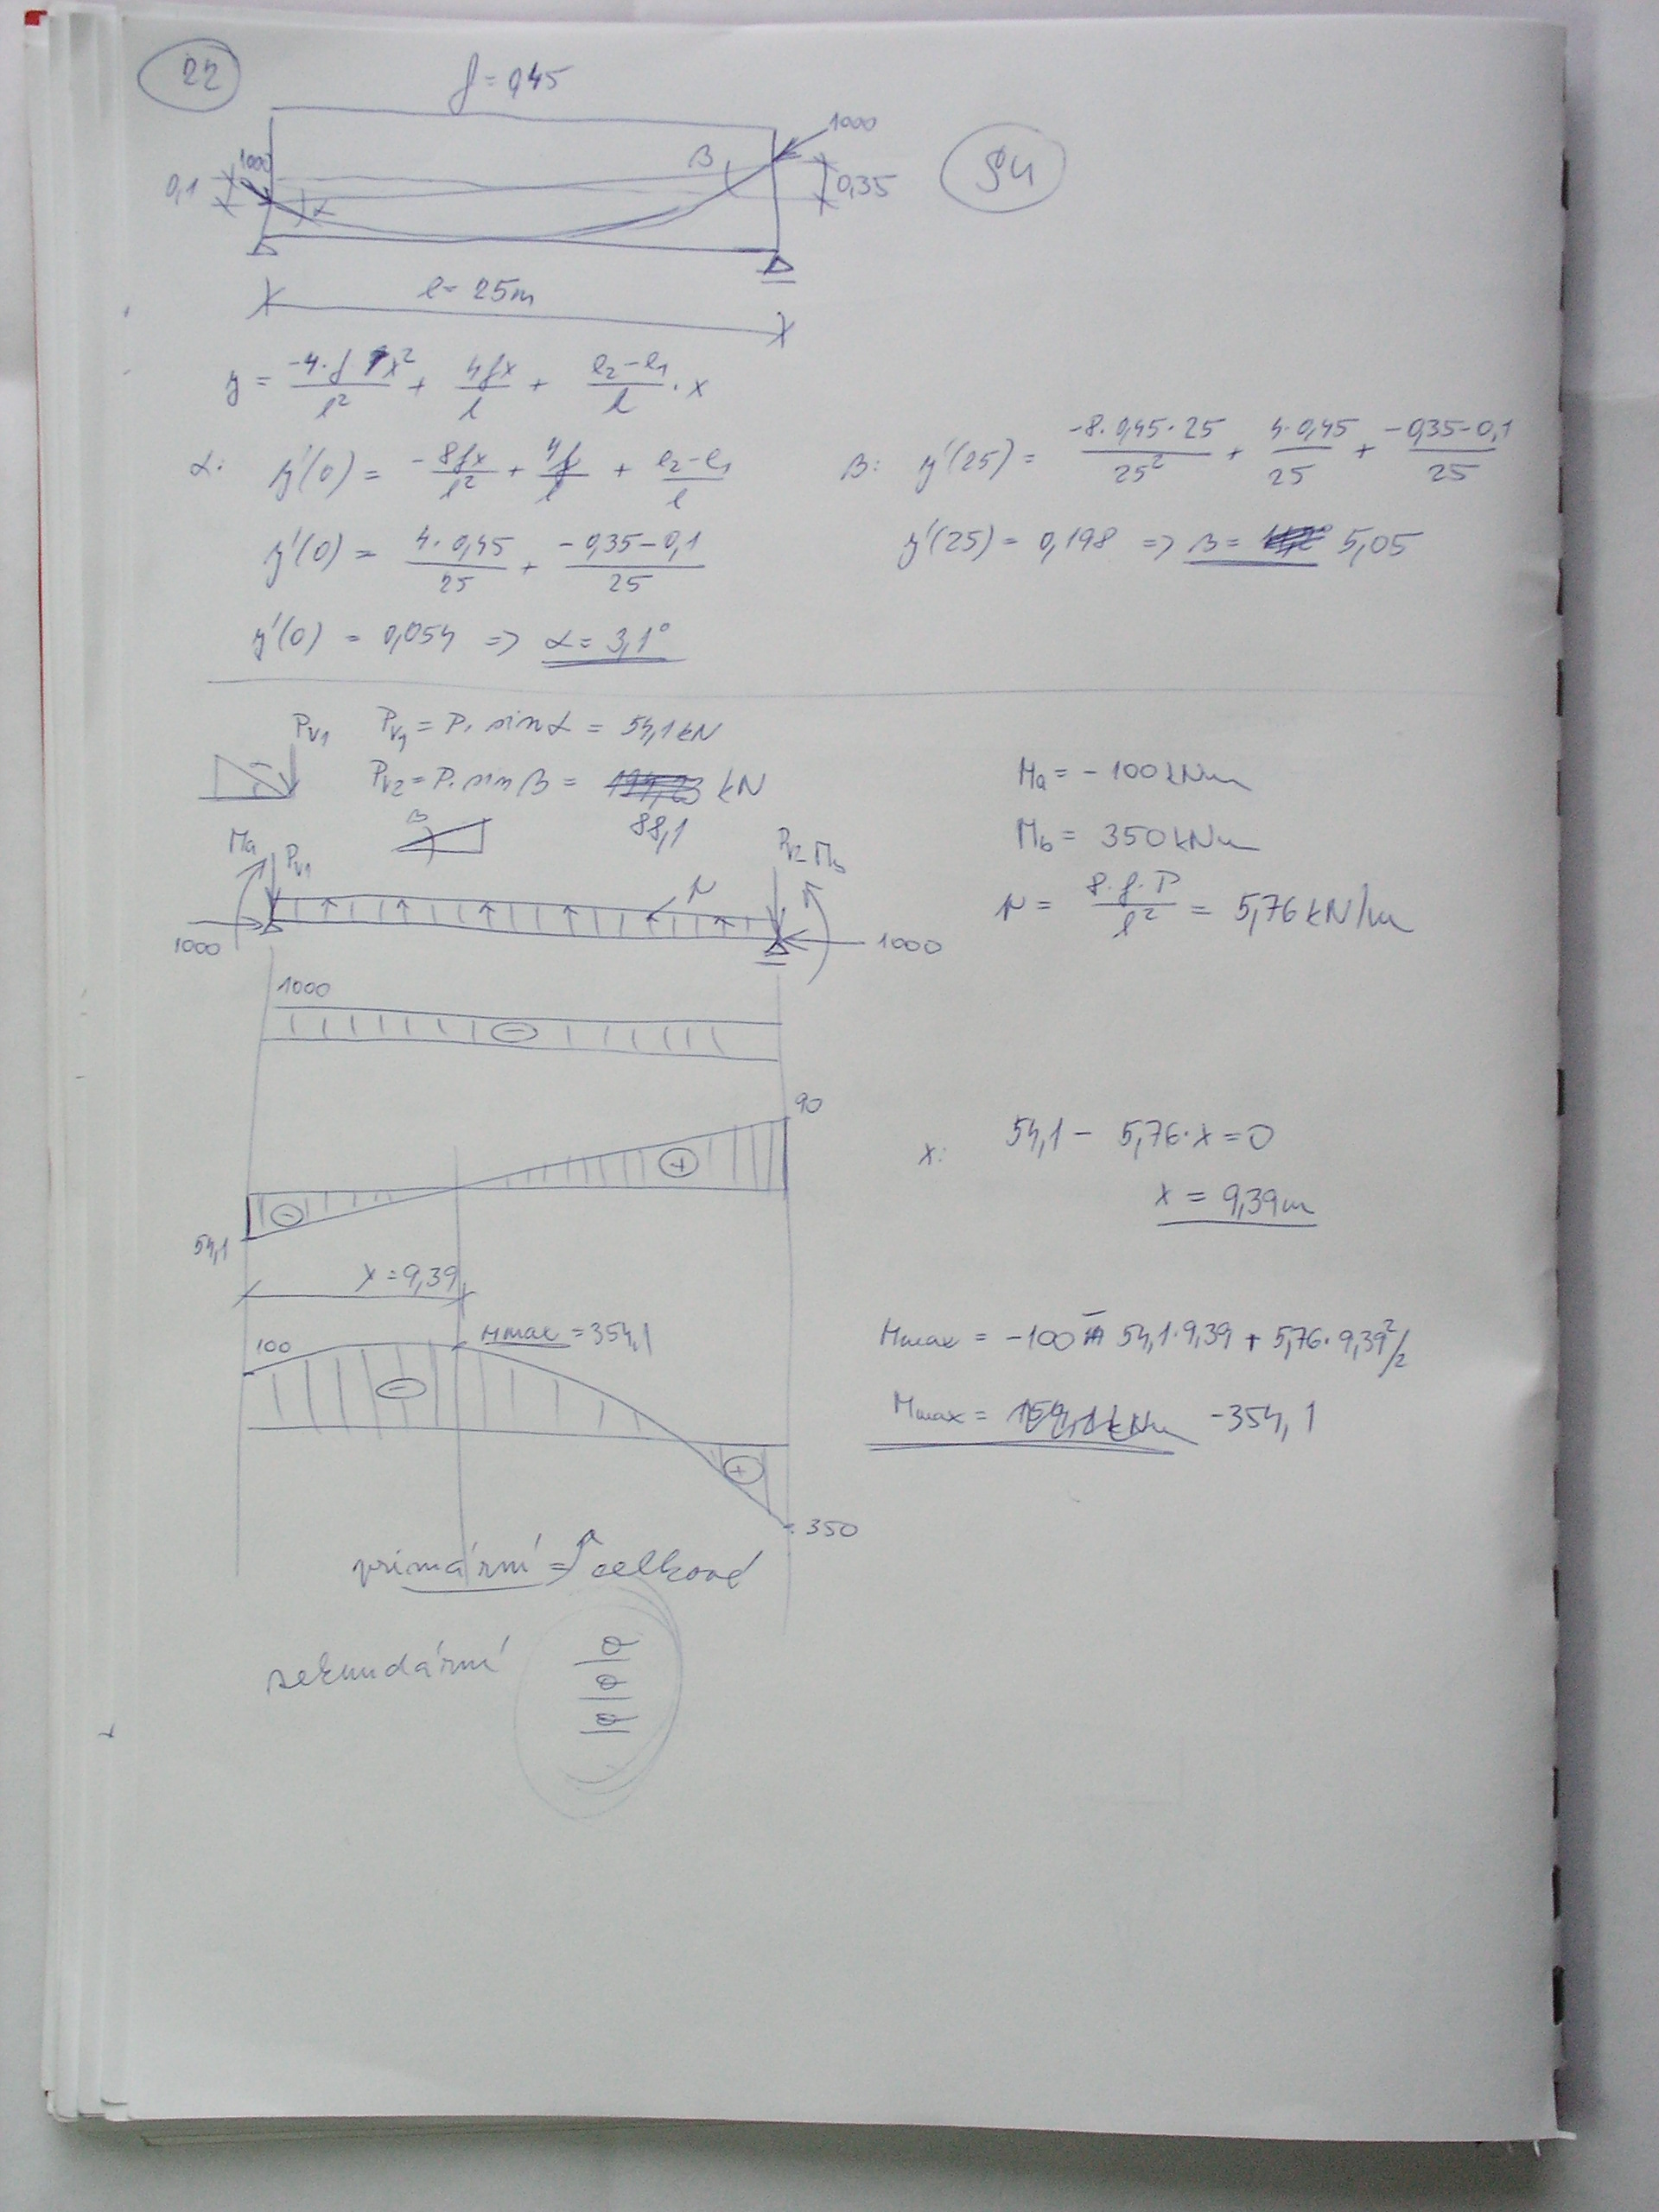 22
f = 0,45
1000
1000
β
0,1
α
0,35
S4
l = 25m
y = -4·f x²/l² + 4fx/l + e₂-e₁/l · x
α: y'(0) = -8fx/l² + 4f/l + e₂-e₁/l
β: y'(25) = -8·0,45·25/25² + 4·0,45/25 + -0,35-0,1/25
y'(0) = 4·0,45/25 + -0,35-0,1/25
y'(25) = 0,198 => β = 5,05
y'(0) = 0,054 => α = 3,1°
Pv1 Pv1 = P· sin α = 54,1 kN
Pv2 = P· sin β = kN
88,1
β
Ma = -100 kNm
Mb = 350 kNm
r = 8·f·P/l² = 5,76 kN/m
Ma Pv1 r Pv2 Mb
1000 1000
1000
-
90
x: 54,1 - 5,76·x = 0
+
x = 9,39m
-
54,1
x = 9,39
100 Mmax = 354,1
Mmax = -100 - 54,1·9,39 + 5,76·9,39²/2
-
Mmax = -354,1
+
350
primární => celkové
sekundární
0
0
0